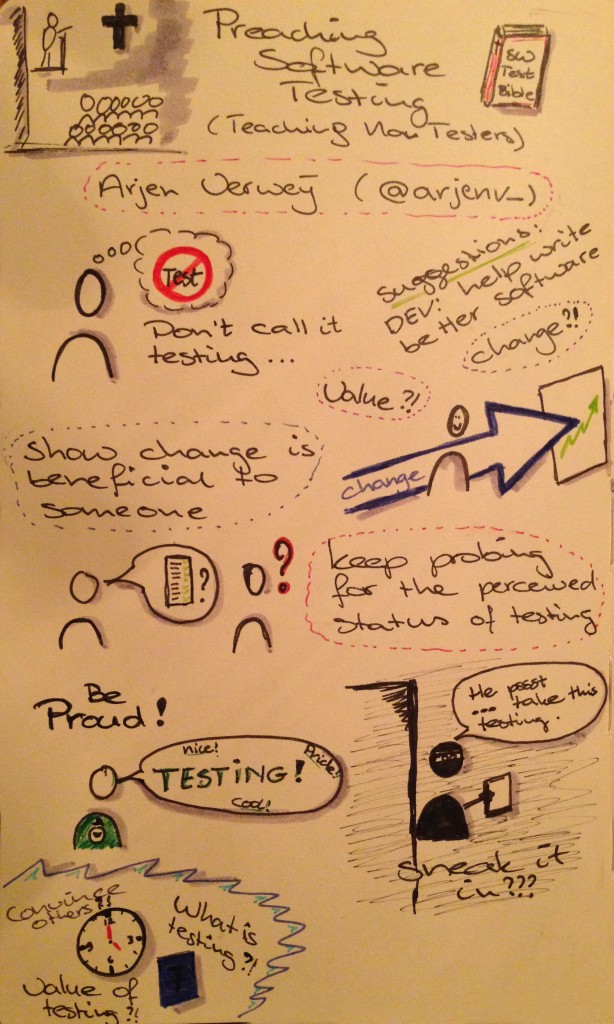 Preaching
Software
Testing
(Teaching Non Testers)
SW
Test
Bible
Arjen Verweij (@arjenv_)
Test
Don't call it
testing...
suggestions:
DEV: help write
better software
change?!
Value?!
show change is
beneficial to
someone
change
?
?
keep probing
for the perceived
status of testing
Be
Proud!
nice!
Pride!
TESTING!
cool!
He pssst
... take this
testing.
sneak it
in???
Convince
others?!
What is
testing?!
Value of
testing?!